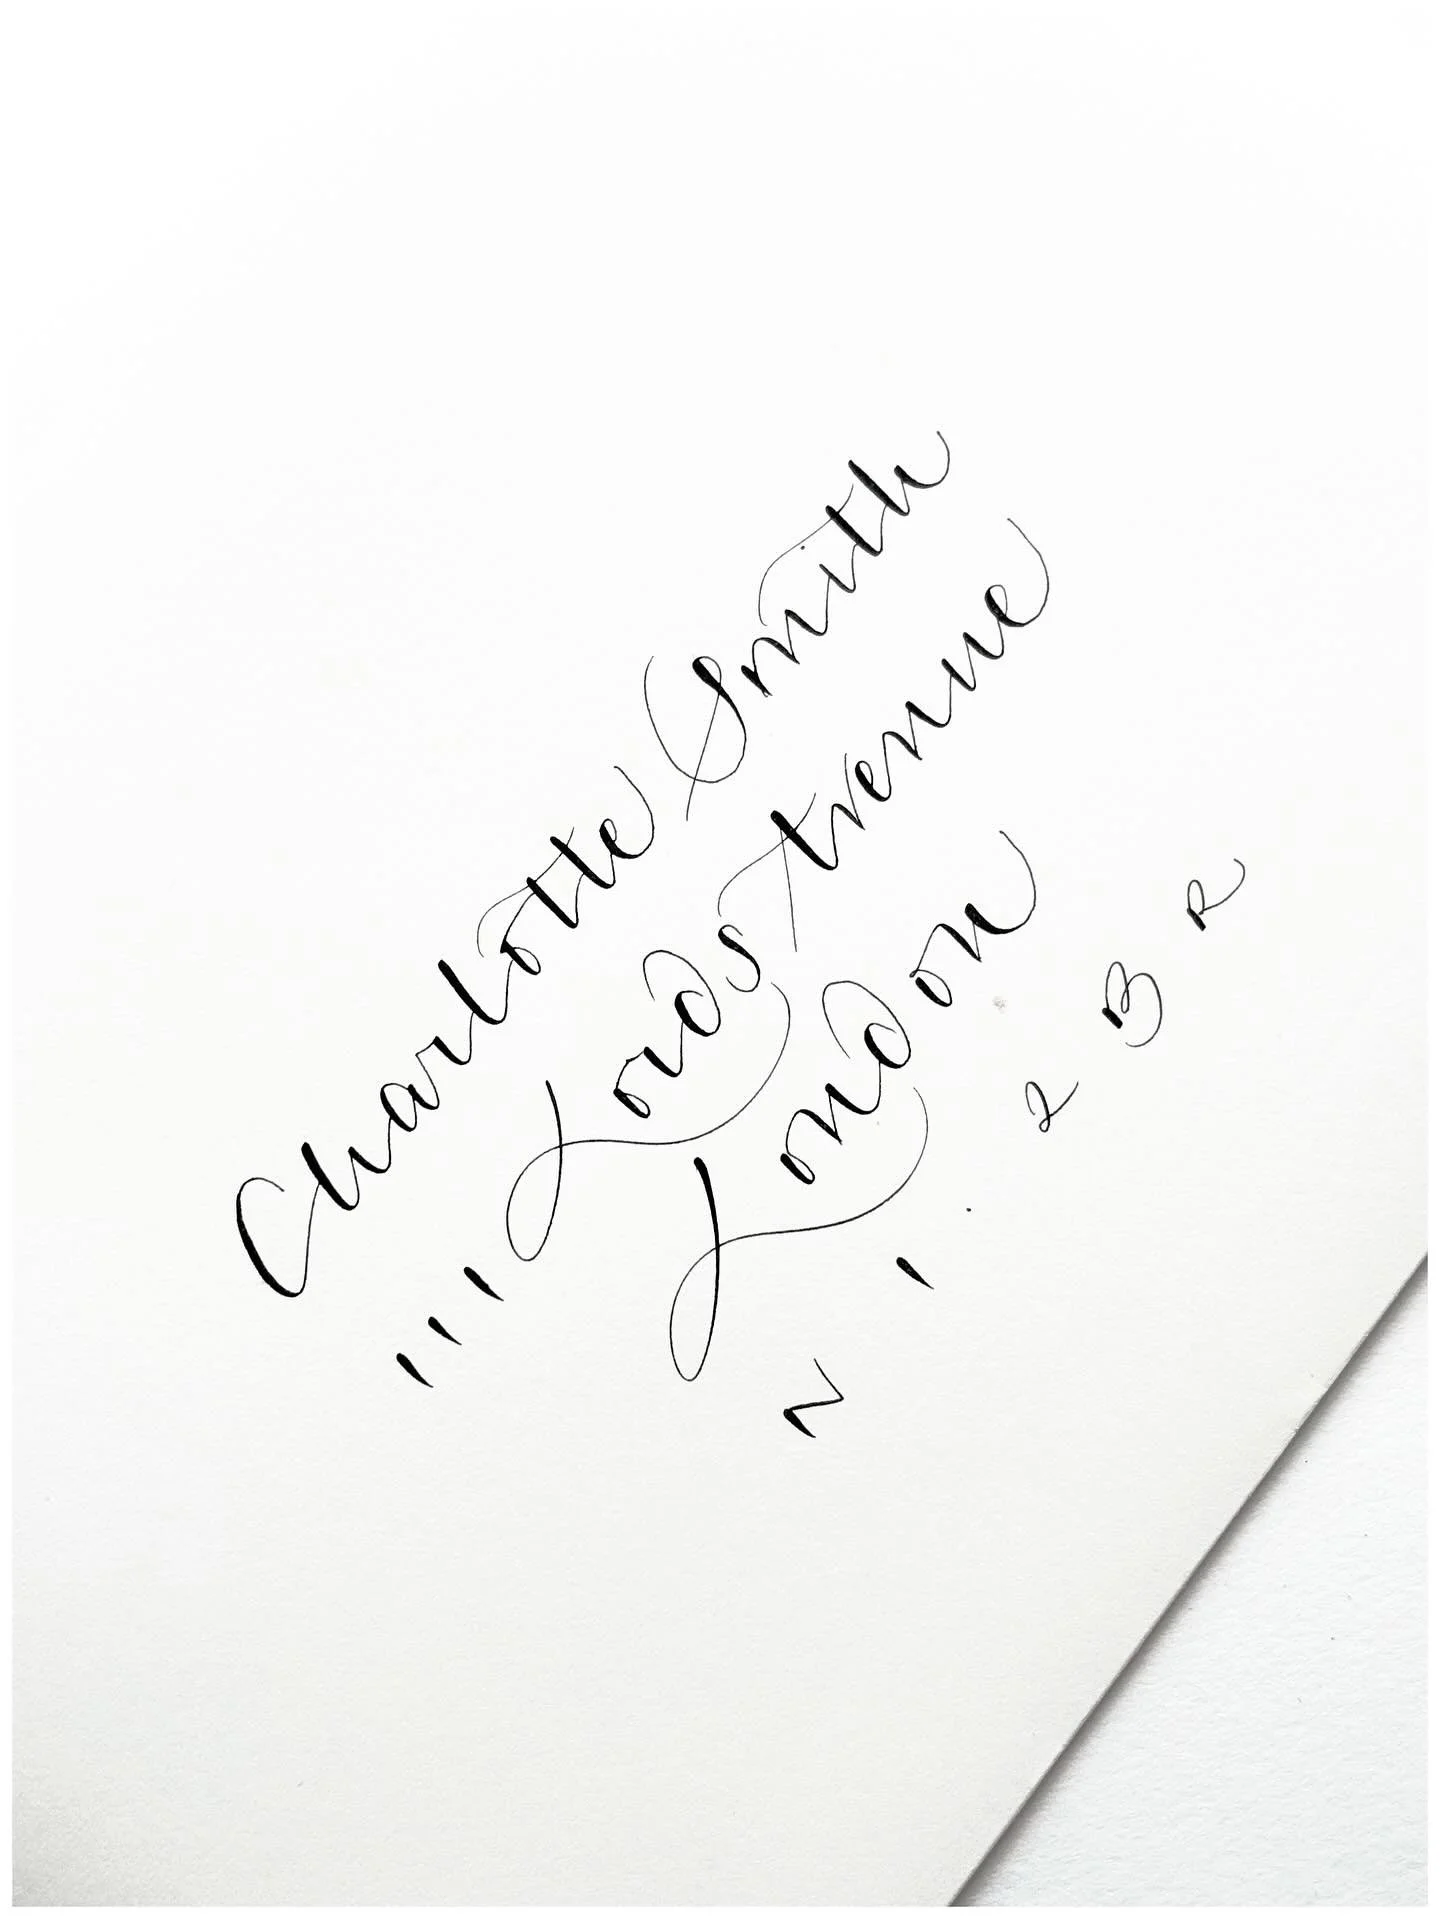 Charlotte Smith
111 Lords Avenue
London
N1 2BR